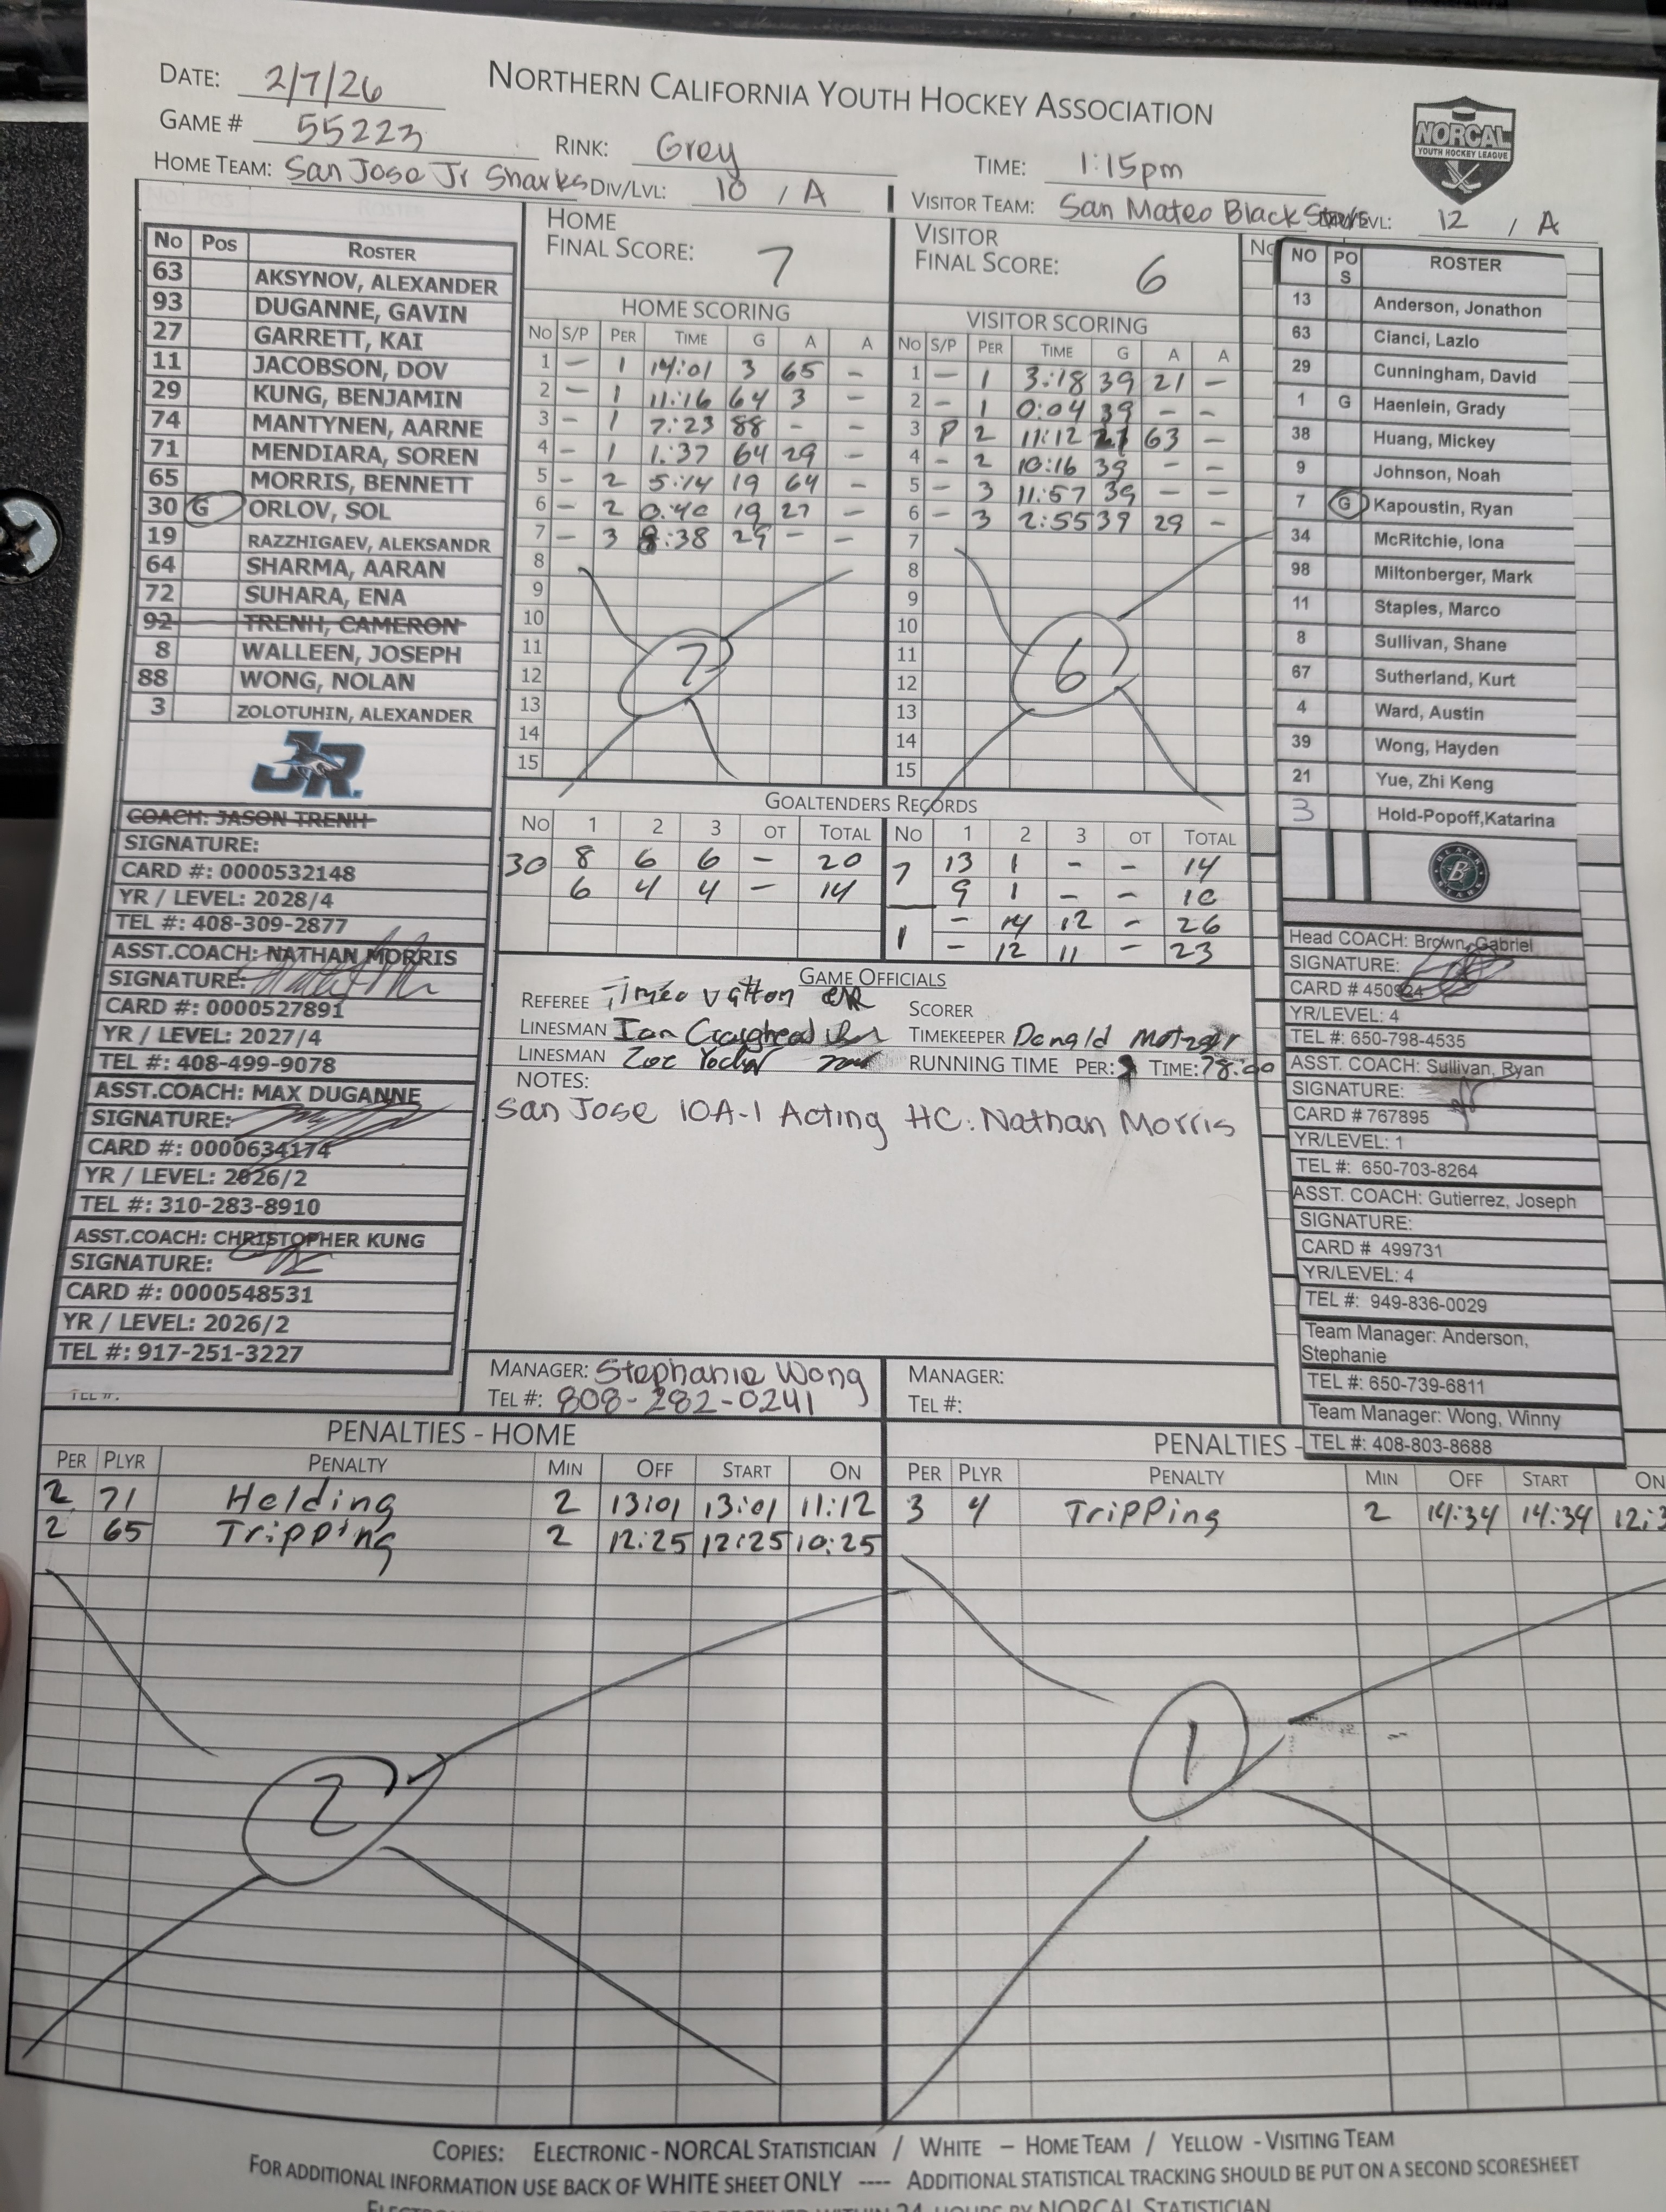 NORTHERN CALIFORNIA YOUTH HOCKEY ASSOCIATION
DATE: 2/7/26
GAME # 55223
RINK: Grey
TIME: 1:15pm
NORCAL
YOUTH HOCKEY LEAGUE
HOME TEAM: San Jose Jr Sharks DIV/LVL: 10 / A
VISITOR TEAM: San Mateo Black Stars 12 / A
No Pos ROSTER
63 AKSYNOV, ALEXANDER
93 DUGANNE, GAVIN
27 GARRETT, KAI
11 JACOBSON, DOV
29 KUNG, BENJAMIN
74 MANTYNEN, AARNE
71 MENDIARA, SOREN
65 MORRIS, BENNETT
30 G ORLOV, SOL
19 RAZZHIGAEV, ALEKSANDR
64 SHARMA, AARAN
72 SUHARA, ENA
92 TRENH, CAMERON
8 WALLEEN, JOSEPH
88 WONG, NOLAN
3 ZOLOTUHIN, ALEXANDER
JR.
COACH: JASON TRENH
SIGNATURE:
CARD #: 0000532148
YR / LEVEL: 2028/4
TEL #: 408-309-2877
ASST.COACH: NATHAN MORRIS
SIGNATURE:
CARD #: 0000527891
YR / LEVEL: 2027/4
TEL #: 408-499-9078
ASST.COACH: MAX DUGANNE
SIGNATURE:
CARD #: 0000634174
YR / LEVEL: 2026/2
TEL #: 310-283-8910
ASST.COACH: CHRISTOPHER KUNG
SIGNATURE:
CARD #: 0000548531
YR / LEVEL: 2026/2
TEL #: 917-251-3227
TEL #:
HOME
FINAL SCORE: 7
HOME SCORING
No S/P PER TIME G A A
1 – 1 14:01 3 65 –
2 – 1 11:16 64 3 –
3 – 1 7:23 88 – –
4 – 1 1:37 64 29 –
5 – 2 5:14 19 64 –
6 – 2 0:40 19 27 –
7 – 3 8:38 29 – –
8
9
10
11
12
13
14
15
7
VISITOR
FINAL SCORE: 6
VISITOR SCORING
No S/P PER TIME G A A
1 – 1 3:18 39 21 –
2 – 1 0:04 39 – –
3 P 2 11:12 21 63 –
4 – 2 10:16 39 – –
5 – 3 11:57 39 – –
6 – 3 2:55 39 29 –
7
8
9
10
11
12
13
14
15
6
No
NO POS ROSTER
13 Anderson, Jonathon
63 Cianci, Lazlo
29 Cunningham, David
1 G Haenlein, Grady
38 Huang, Mickey
9 Johnson, Noah
7 G Kapoustin, Ryan
34 McRitchie, Iona
98 Miltonberger, Mark
11 Staples, Marco
8 Sullivan, Shane
67 Sutherland, Kurt
4 Ward, Austin
39 Wong, Hayden
21 Yue, Zhi Keng
3 Hold-Popoff,Katarina
B
Head COACH: Brown, Gabriel
SIGNATURE:
CARD # 450924
YR/LEVEL: 4
TEL #: 650-798-4535
ASST. COACH: Sullivan, Ryan
SIGNATURE:
CARD # 767895
YR/LEVEL: 1
TEL #: 650-703-8264
ASST. COACH: Gutierrez, Joseph
SIGNATURE:
CARD # 499731
YR/LEVEL: 4
TEL #: 949-836-0029
Team Manager: Anderson,
Stephanie
TEL #: 650-739-6811
Team Manager: Wong, Winny
TEL #: 408-803-8688
GOALTENDERS RECORDS
NO 1 2 3 OT TOTAL NO 1 2 3 OT TOTAL
30 8 6 6 – 20 7 13 1 – – 14
6 4 4 – 14 9 1 – – 10
1 – 14 12 – 26
– 12 11 – 23
GAME OFFICIALS
REFEREE Timéo SCORER
LINESMAN Ian Craighead TIMEKEEPER Donald
LINESMAN Zoe RUNNING TIME PER: TIME: 78:00
NOTES:
San Jose 10A-1 Acting HC: Nathan Morris
MANAGER: Stephanie Wong
TEL #: 808-282-0241
MANAGER:
TEL #:
PENALTIES - HOME
PER PLYR PENALTY MIN OFF START ON
2 71 Holding 2 13:01 13:01 11:12
2 65 Tripping 2 12:25 12:25 10:25
2
PENALTIES -
PER PLYR PENALTY MIN OFF START ON
3 4 Tripping 2 14:34 14:34 12:3
1
COPIES: ELECTRONIC - NORCAL STATISTICIAN / WHITE – HOME TEAM / YELLOW - VISITING TEAM
FOR ADDITIONAL INFORMATION USE BACK OF WHITE SHEET ONLY ---- ADDITIONAL STATISTICAL TRACKING SHOULD BE PUT ON A SECOND SCORESHEET
24 HOURS BY NORCAL STATISTICIAN